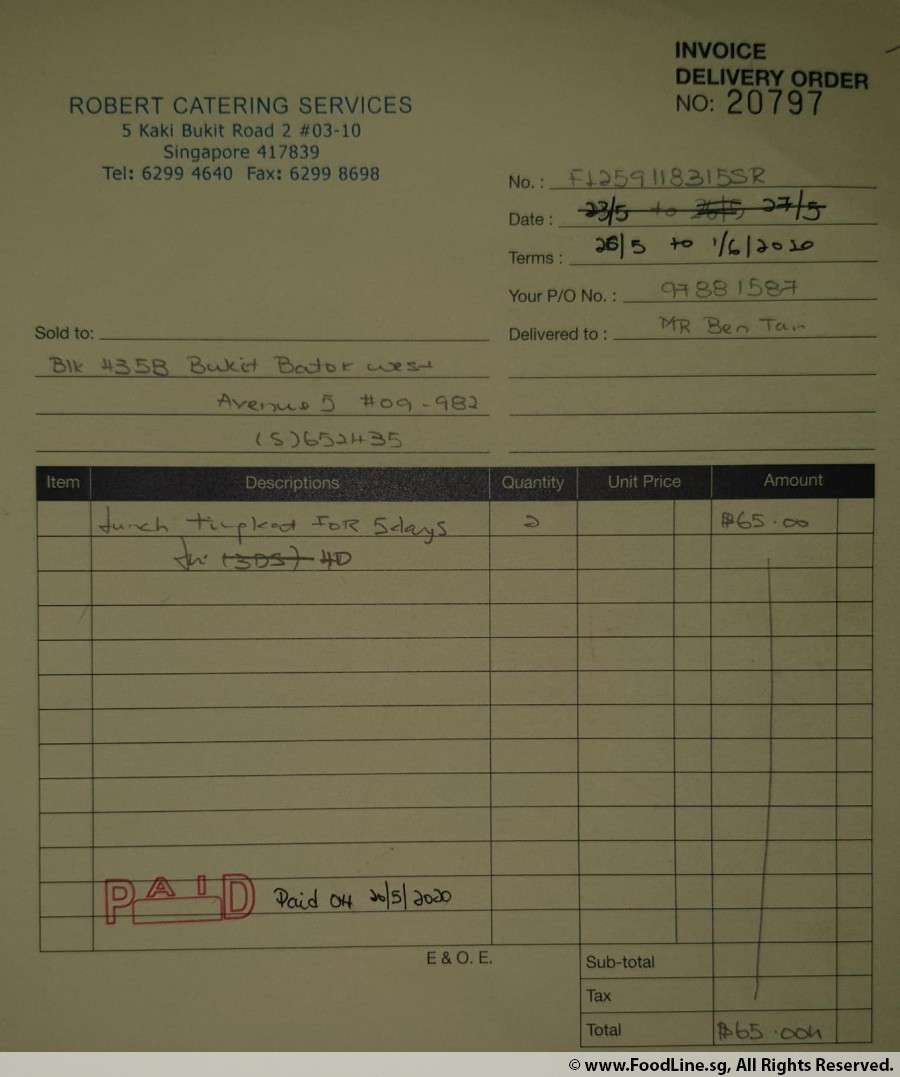 INVOICE
DELIVERY ORDER
NO: 20797
ROBERT CATERING SERVICES
5 Kaki Bukit Road 2 #03-10
Singapore 417839
Tel: 6299 4640 Fax: 6299 8698
No. : F1259118315SR
Date : 23/5 to 27/5
Terms : 26/5 to 1/6/2020
Your P/O No. : 97881587
Delivered to : MR Ben Tan
Sold to:
Blk 435B Bukit Batok west
Avenue 5 #09-982
(S)652435
Item Descriptions Quantity Unit Price Amount
Lunch tingkat FOR 5days 2 $65.00
(3DS) 4D
PAID Paid on 20/5/2020
E & O. E.
Sub-total
Tax
Total $65.00
© www.FoodLine.sg, All Rights Reserved.